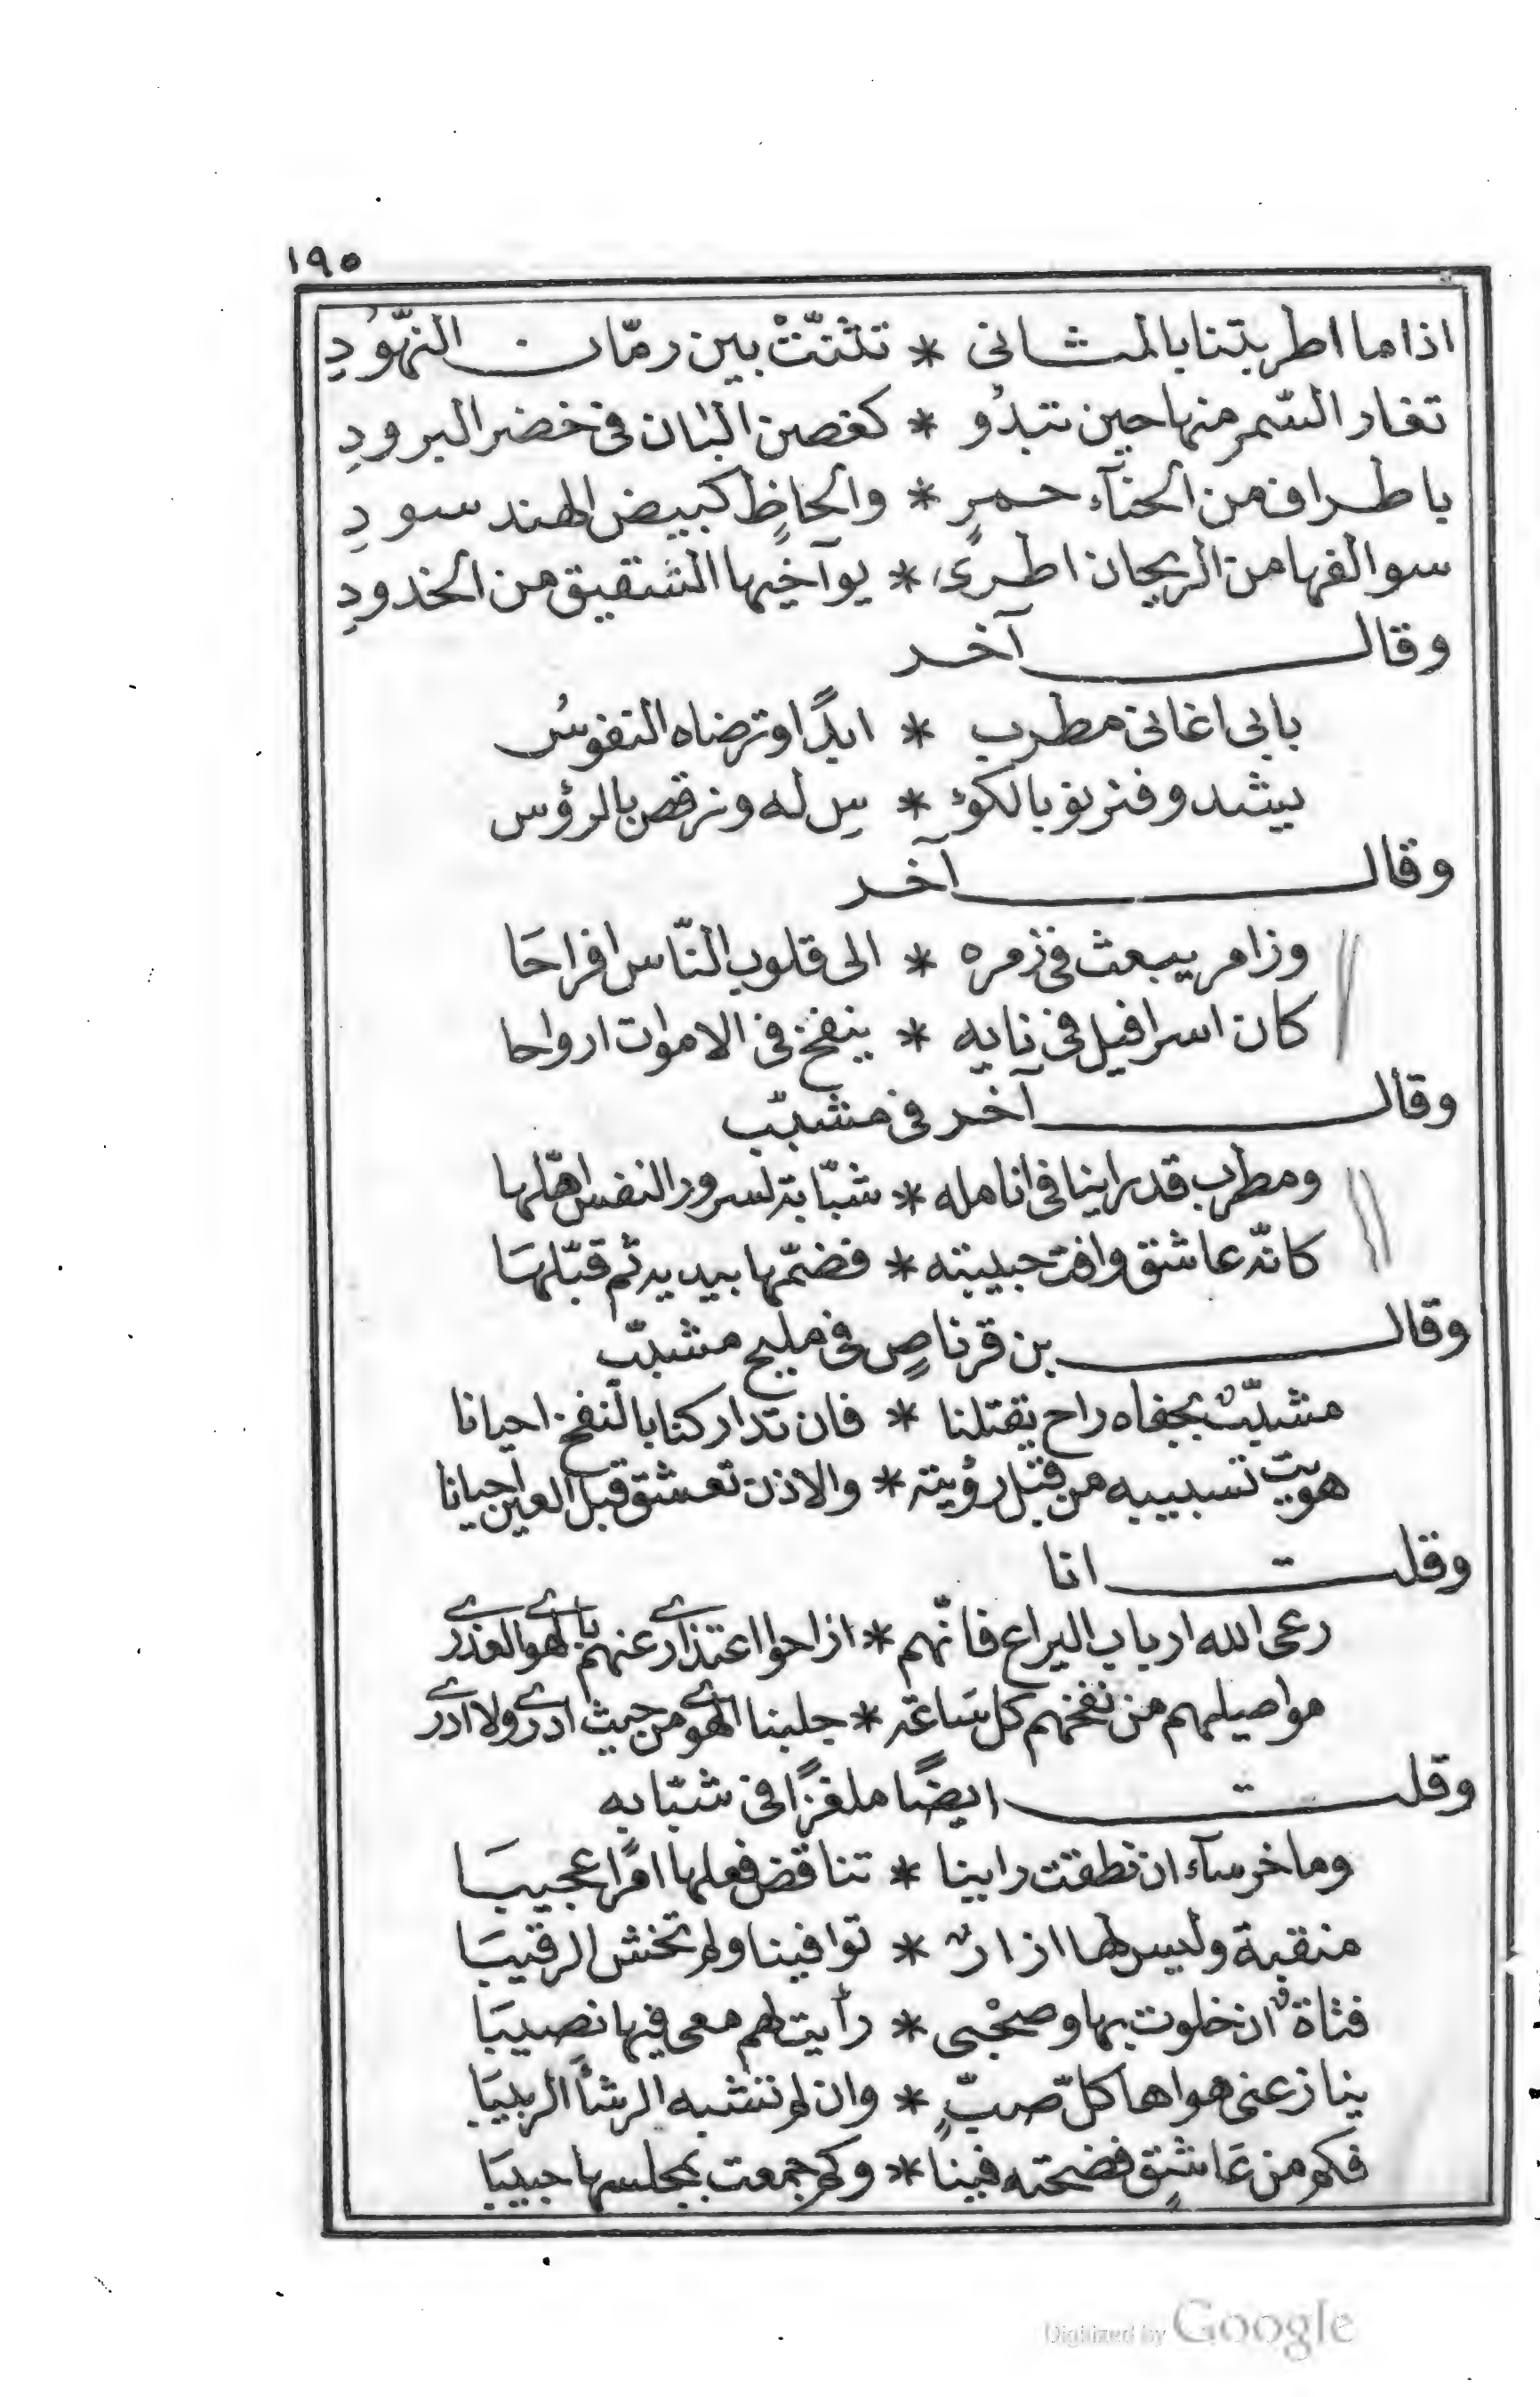 ١٩٥
اذا ما اطربتنا بالمثانى * تثنّتْ بين رمّان النّهودِ
تغار السّمر منها حين تبدُو * كغصن البان فى خضر البرودِ
باطراف من الحنّآء حمرٍ * والحاظٍ كبيض الهند سودِ
سوالفها من الريحان اطرى * يوآخيها الشقيق من الخدودِ
وقال آخر
بابى اغانى مطرب * ابدًا وترضاه النفوسُ
يشدو فنزفو بالكؤ * سِ له ونرقص بالرؤس
وقال آخر
وزامر يبعث فى زمره * الى قلوب النّاس افراحَا
كان اسرافيل فى نايه * ينفخ فى الاموات ارواحا
وقال آخر فى مشبّب
ومطرب قد راينا فى انامله * شبّابة لسرور النفس اهّلها
كانّه عاشق وافت حبيبته * فضمّها بيديه ثم قبّلهَا
وقال بن قرناصٍ فى مليح مشبّب
مشبّبٌ بجفاه راح يقتلنا * فان تداركنا بالنفخ احيانا
هويت تشبيبه من قبل رؤيته * والاذن تعشق قبل العين احيانا
وقلت انا
رعى الله ارباب اليراع فانّهم * ازاحوا اعتذارى عنهم بالهوى العذرى
مواصيلهم من نفخهم كل سَاعة * جلبنا الهوى من حيث ادرى ولا ادرى
وقلت ايضًا ملغزًا فى شبّابه
وما خرسآء ان نطقت راينا * تناقض فعلها امرًا عجيبَا
منقبة وليس لها ازارٌ * توافينا ولم تخش الرقيبَا
فتاةٌ ان خلوت بها وصحْبى * رأيت لهم معى فيها نصيبَا
ينازعنى هواها كلّ صبٍّ * وان لم تشبه الرشأ الربيبَا
فكم من عَاشقٍ فضحته فينا * وكم جمعت بمجلسها حبيبَا
Digitized by Google